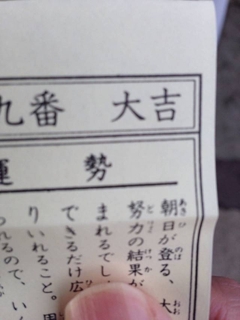 九番 大吉
運勢
朝日が登る、大
努力の結果が
まれるでし
できるだけ広
りいれること。周
われるので、い